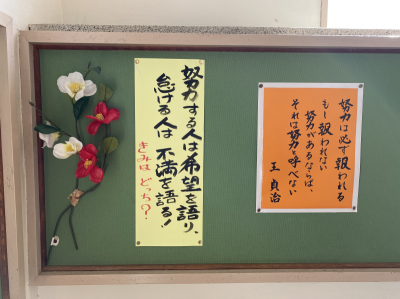 努力する人は希望を語り、
怠ける人は不満を語る！
きみはどっち？
努力は必ず報われる
もし報われない
努力があるならば、
それは努力と呼べない
王貞治